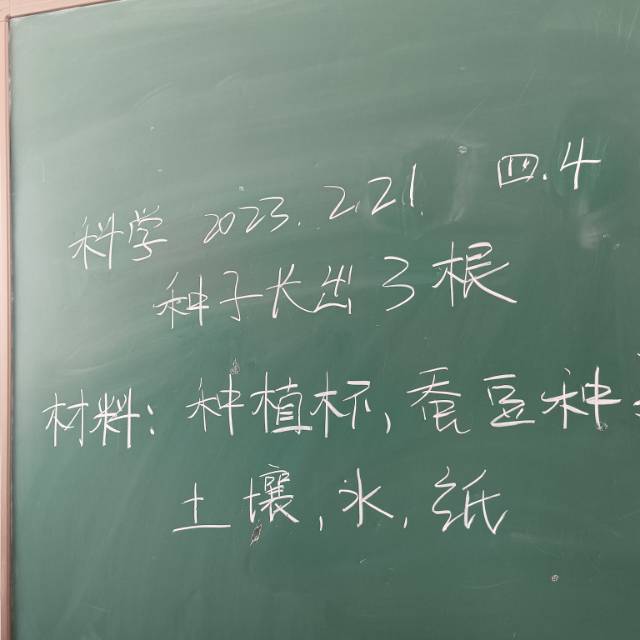 科学 2023.2.21. 四.4
种子长出了根
材料：种植杯，蚕豆种
土壤，水，纸